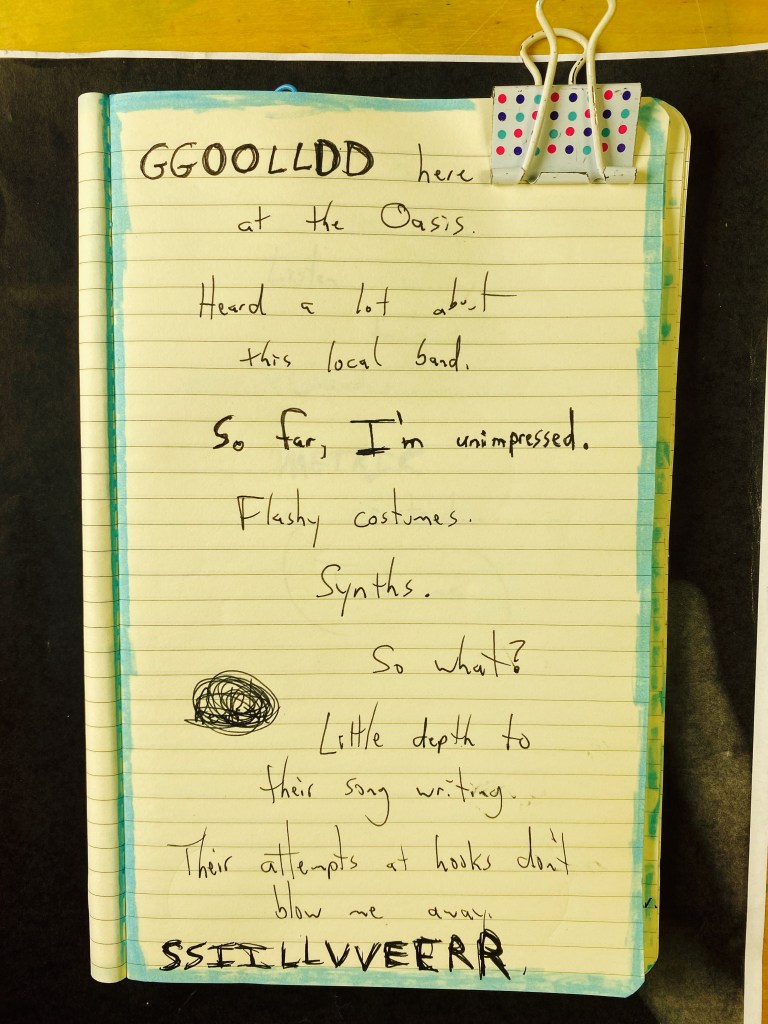 GGOOLLDD here
at the Oasis.
Heard a lot about
this local band.
So far, I'm unimpressed.
Flashy costumes.
Synths.
So what?
Little depth to
their song writing.
Their attempts at hooks don't
blow me away.
SSIILLVVEERR.